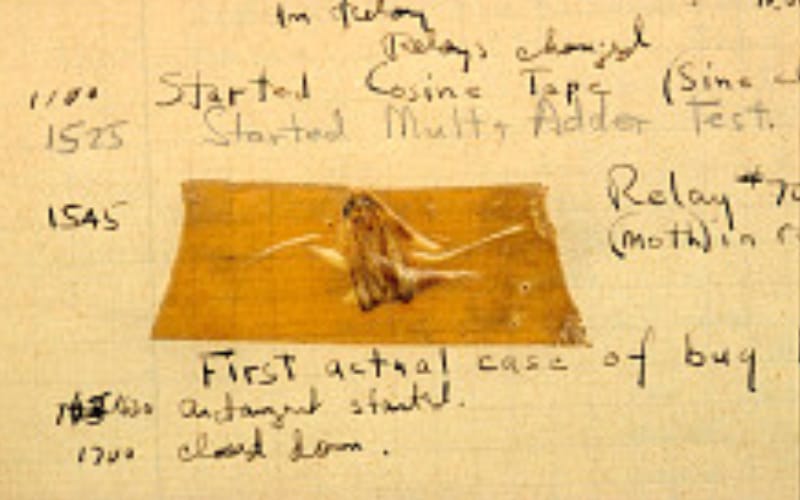 In Relay
Relays changed
1100 Started Cosine Tape (Sine
1525 Started Mult+ Adder Test.
1545 Relay #70
(moth) in
First actual case of bug
1630 antangent started.
1700 closed down.